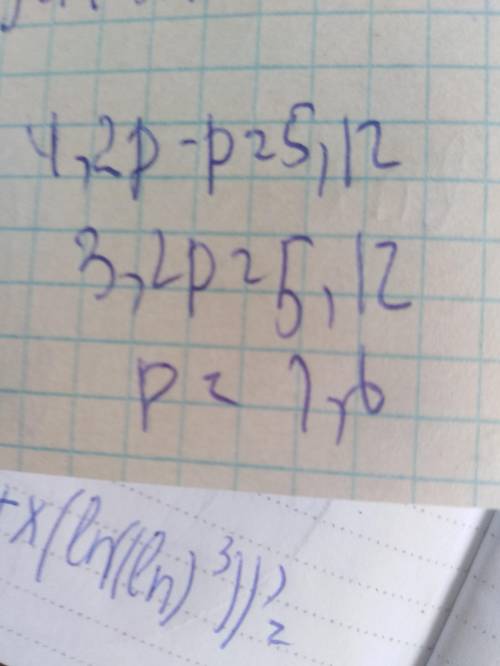 4,2p - p = 5,12
3,2p = 5,12
p = 1,6
+x(ln((ln)³))' =